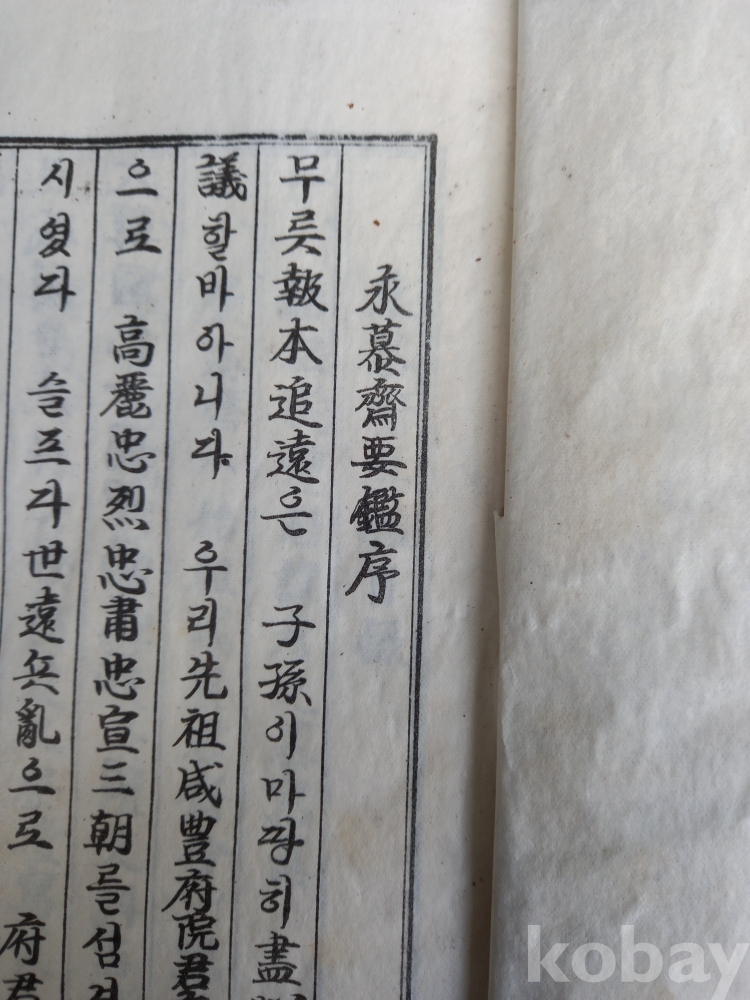 永慕齋要鑑序
무릇報本追遠은 子孫이마땅히盡
議할바아니라 우리先祖咸豊府院君
으로 高麗忠烈忠肅忠宣三朝를섬겨
시엿다 슬프다世遠兵亂으로 府君
kobay